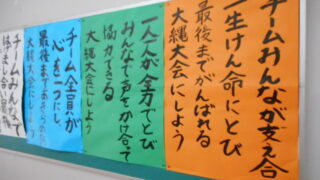 チームみんなが支え合
一生けん命にとび
最後までがんばれる
大縄大会にしよう
一人一人が全力でとび
みんなで声をかけ合って
協力できる
大縄大会にしよう
チーム全員が
心を一つにし、
最後まであきらめない
大縄大会にしよう
チームみんなで
はげまし合い